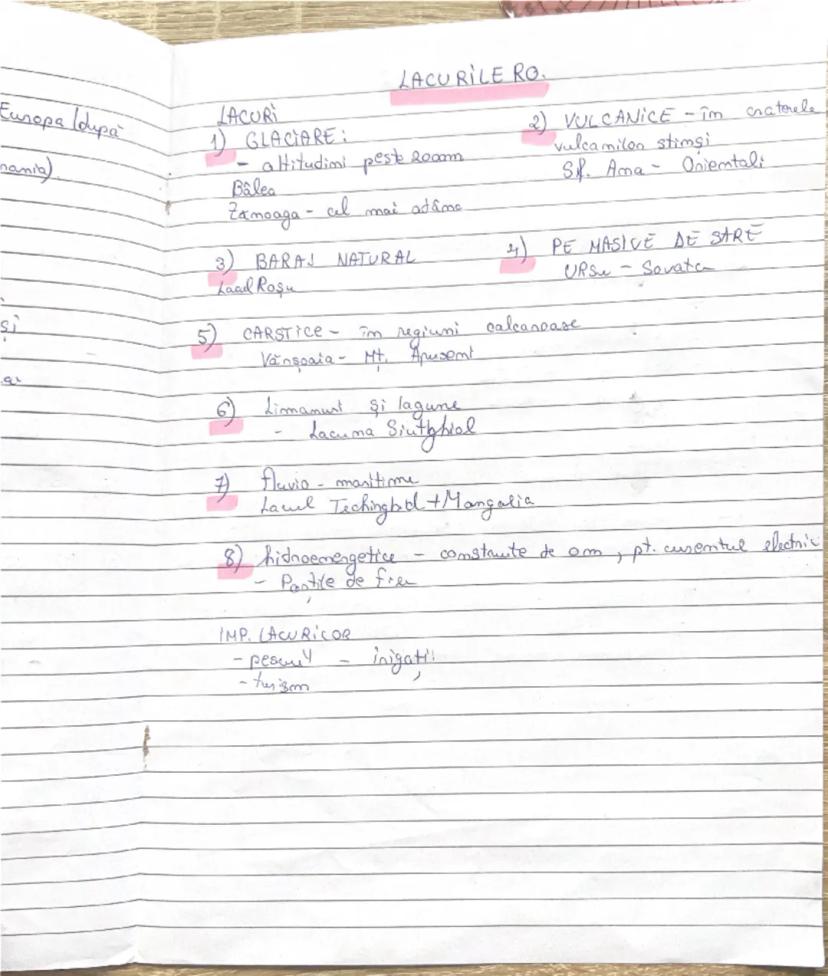 LACURILE RO.
Europa (după
mania)
și
LACURI
1) GLACIARE:
- altitudini peste 2000m
Bâlea
Zănoaga - cel mai adânc
2) VULCANICE - în craterele
vulcanilor stinși
Sf. Ana - Orientali
3) BARAJ NATURAL
Lacul Roșu
4) PE MASIVE DE SARE
URSu - Sovata
5) CARSTICE - în regiuni calcaroase
Vărșoaia - Mț. Apuseni
6) Limanuri și lagune
- Lacuna Siutghiol
7) fluvio-maritime
Lacul Techinghiol + Mangalia
8) hidroenergetice - construite de om, pt. curentul electric
- Porțile de fier
IMP. LACURILOR
- pescuit - irigații
- turism